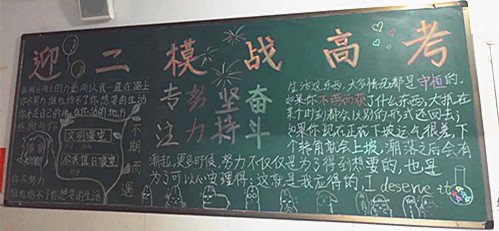 迎二模战高考
专努坚奋
注力持斗
不期而遇
生活这东西,大多情况都是守恒的。
如果你不劳而获了什么东西,大抵在
某个时刻都会以别的形式还回去;
如果你现在正在下坡运气很差,下
个转角就会上坡,潮落之后会有
潮起,更多时候,努力不仅仅是为了得到想要的,也是
为了可以心安理得:这就是我应得的,I deserve it
你不努力
谁也给不了你想要的生活